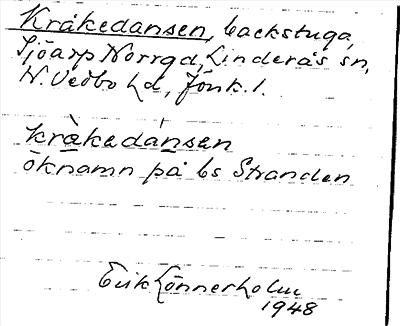 Kråkedansen, backstuga,
Sjöarp Norrgd, Linderås sn,
N. Vedbo hd, Jönk. l.
kràkedánsen
öknamn på bs Stranden
Erik Lönnerholm
1948